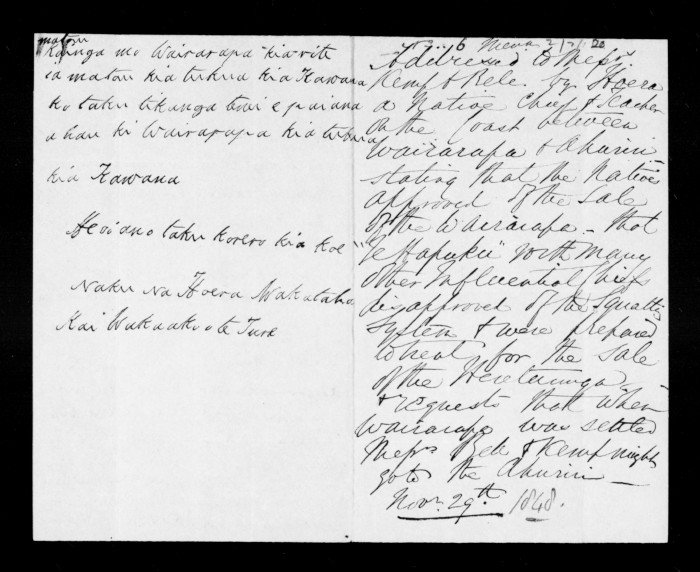 matou
Kainga mo Wairarapa kia rite
ia matou kia tukua kia Kawana
ko taku tikanga tonu e pai ana
ahau ki Wairarapa kia tukua
kia Kawana
Heoi ano taku korero kia koe
Naku Na Hoera Wakataha
Kai Wakaako o te Ture
6
Addressed to Messrs.
Kemp & Bell by Hoera
a Native Chief & Teacher
On the Coast between
Wairarapa & Ahuriri
stating that the Native
approved of the Sale
of the Wairarapa - that
"Te Hapuku" with many
other Influential Chiefs
disapproved of the Squatting
System & were prepared
to treat for the Sale
of the Heretaunga
& requests that when
Wairarapa was settled
Messrs Bell & Kemp might
go to the Ahuriri —
Novr. 29th. 1848.